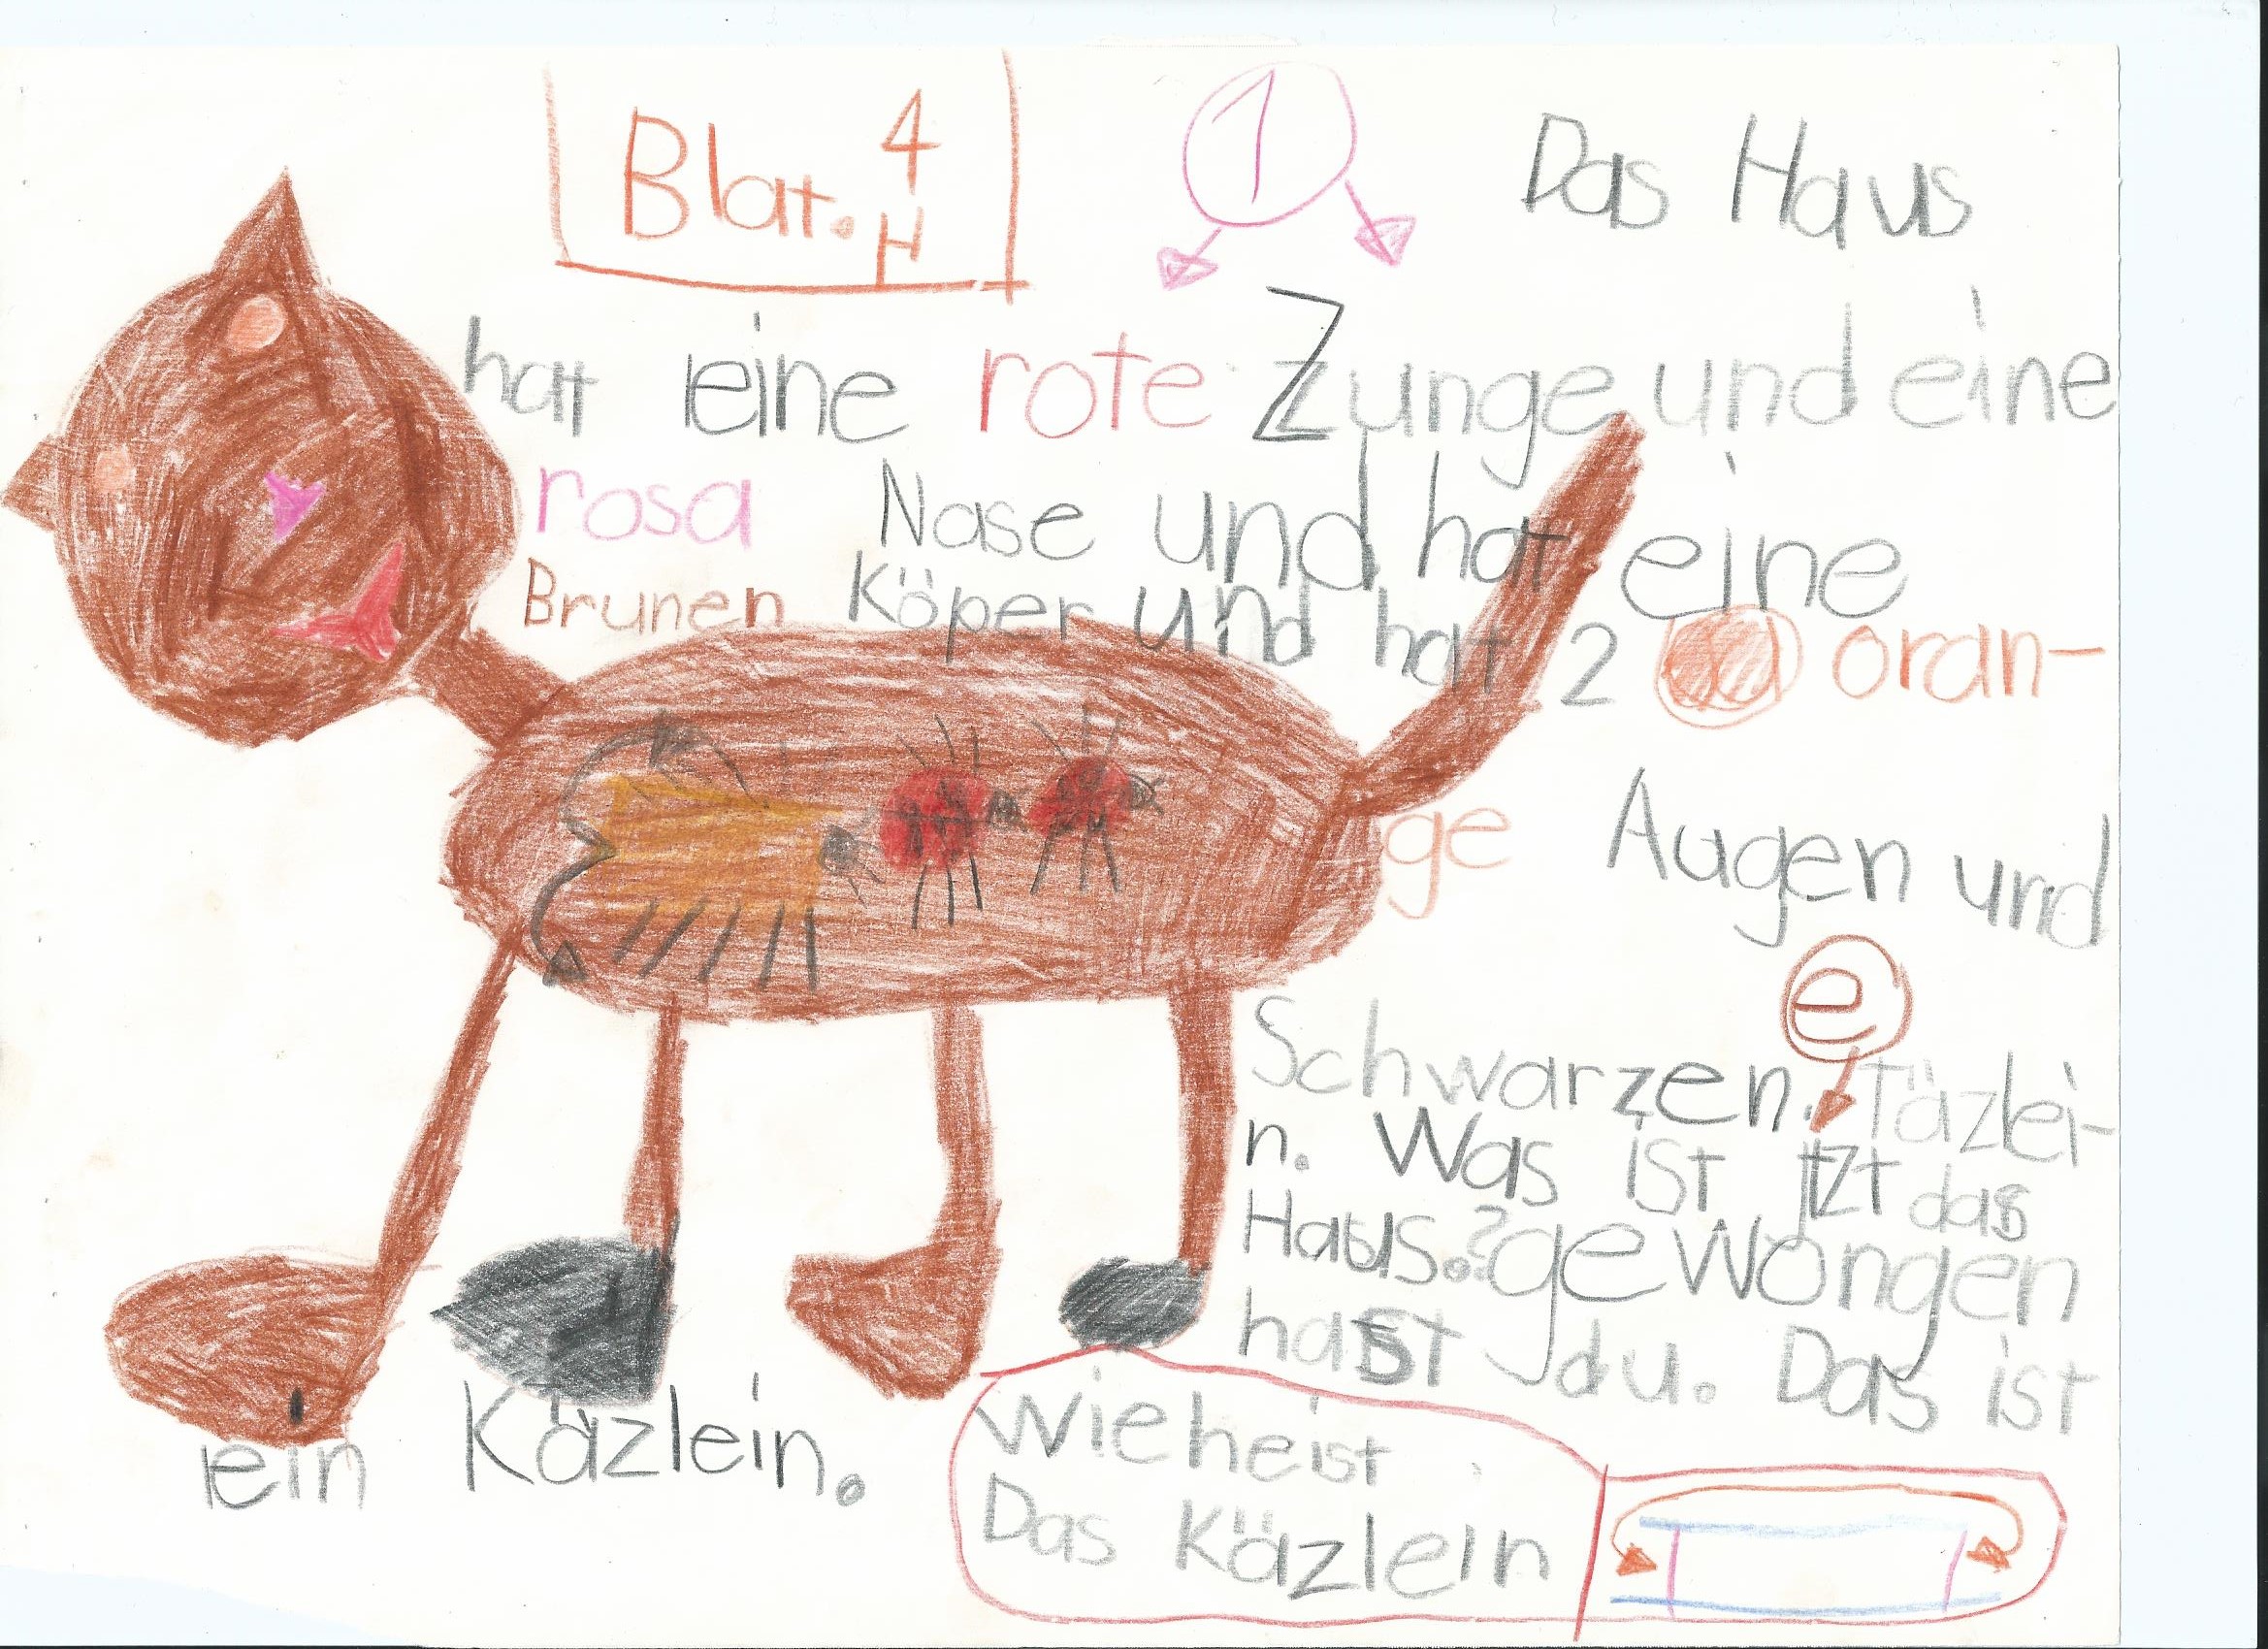 Blat. 4
H
1
Das Haus
hat eine rote Zunge und eine
rosa Nase und hat eine
Brunen Köper und hat 2 oran-
ge Augen und
e
Schwarzen Täzlei-
n. Was ist jtzt das
Haus.? gewongen
hast du. Das ist
ein Käzlein.
Wie heist
Das Käzlein